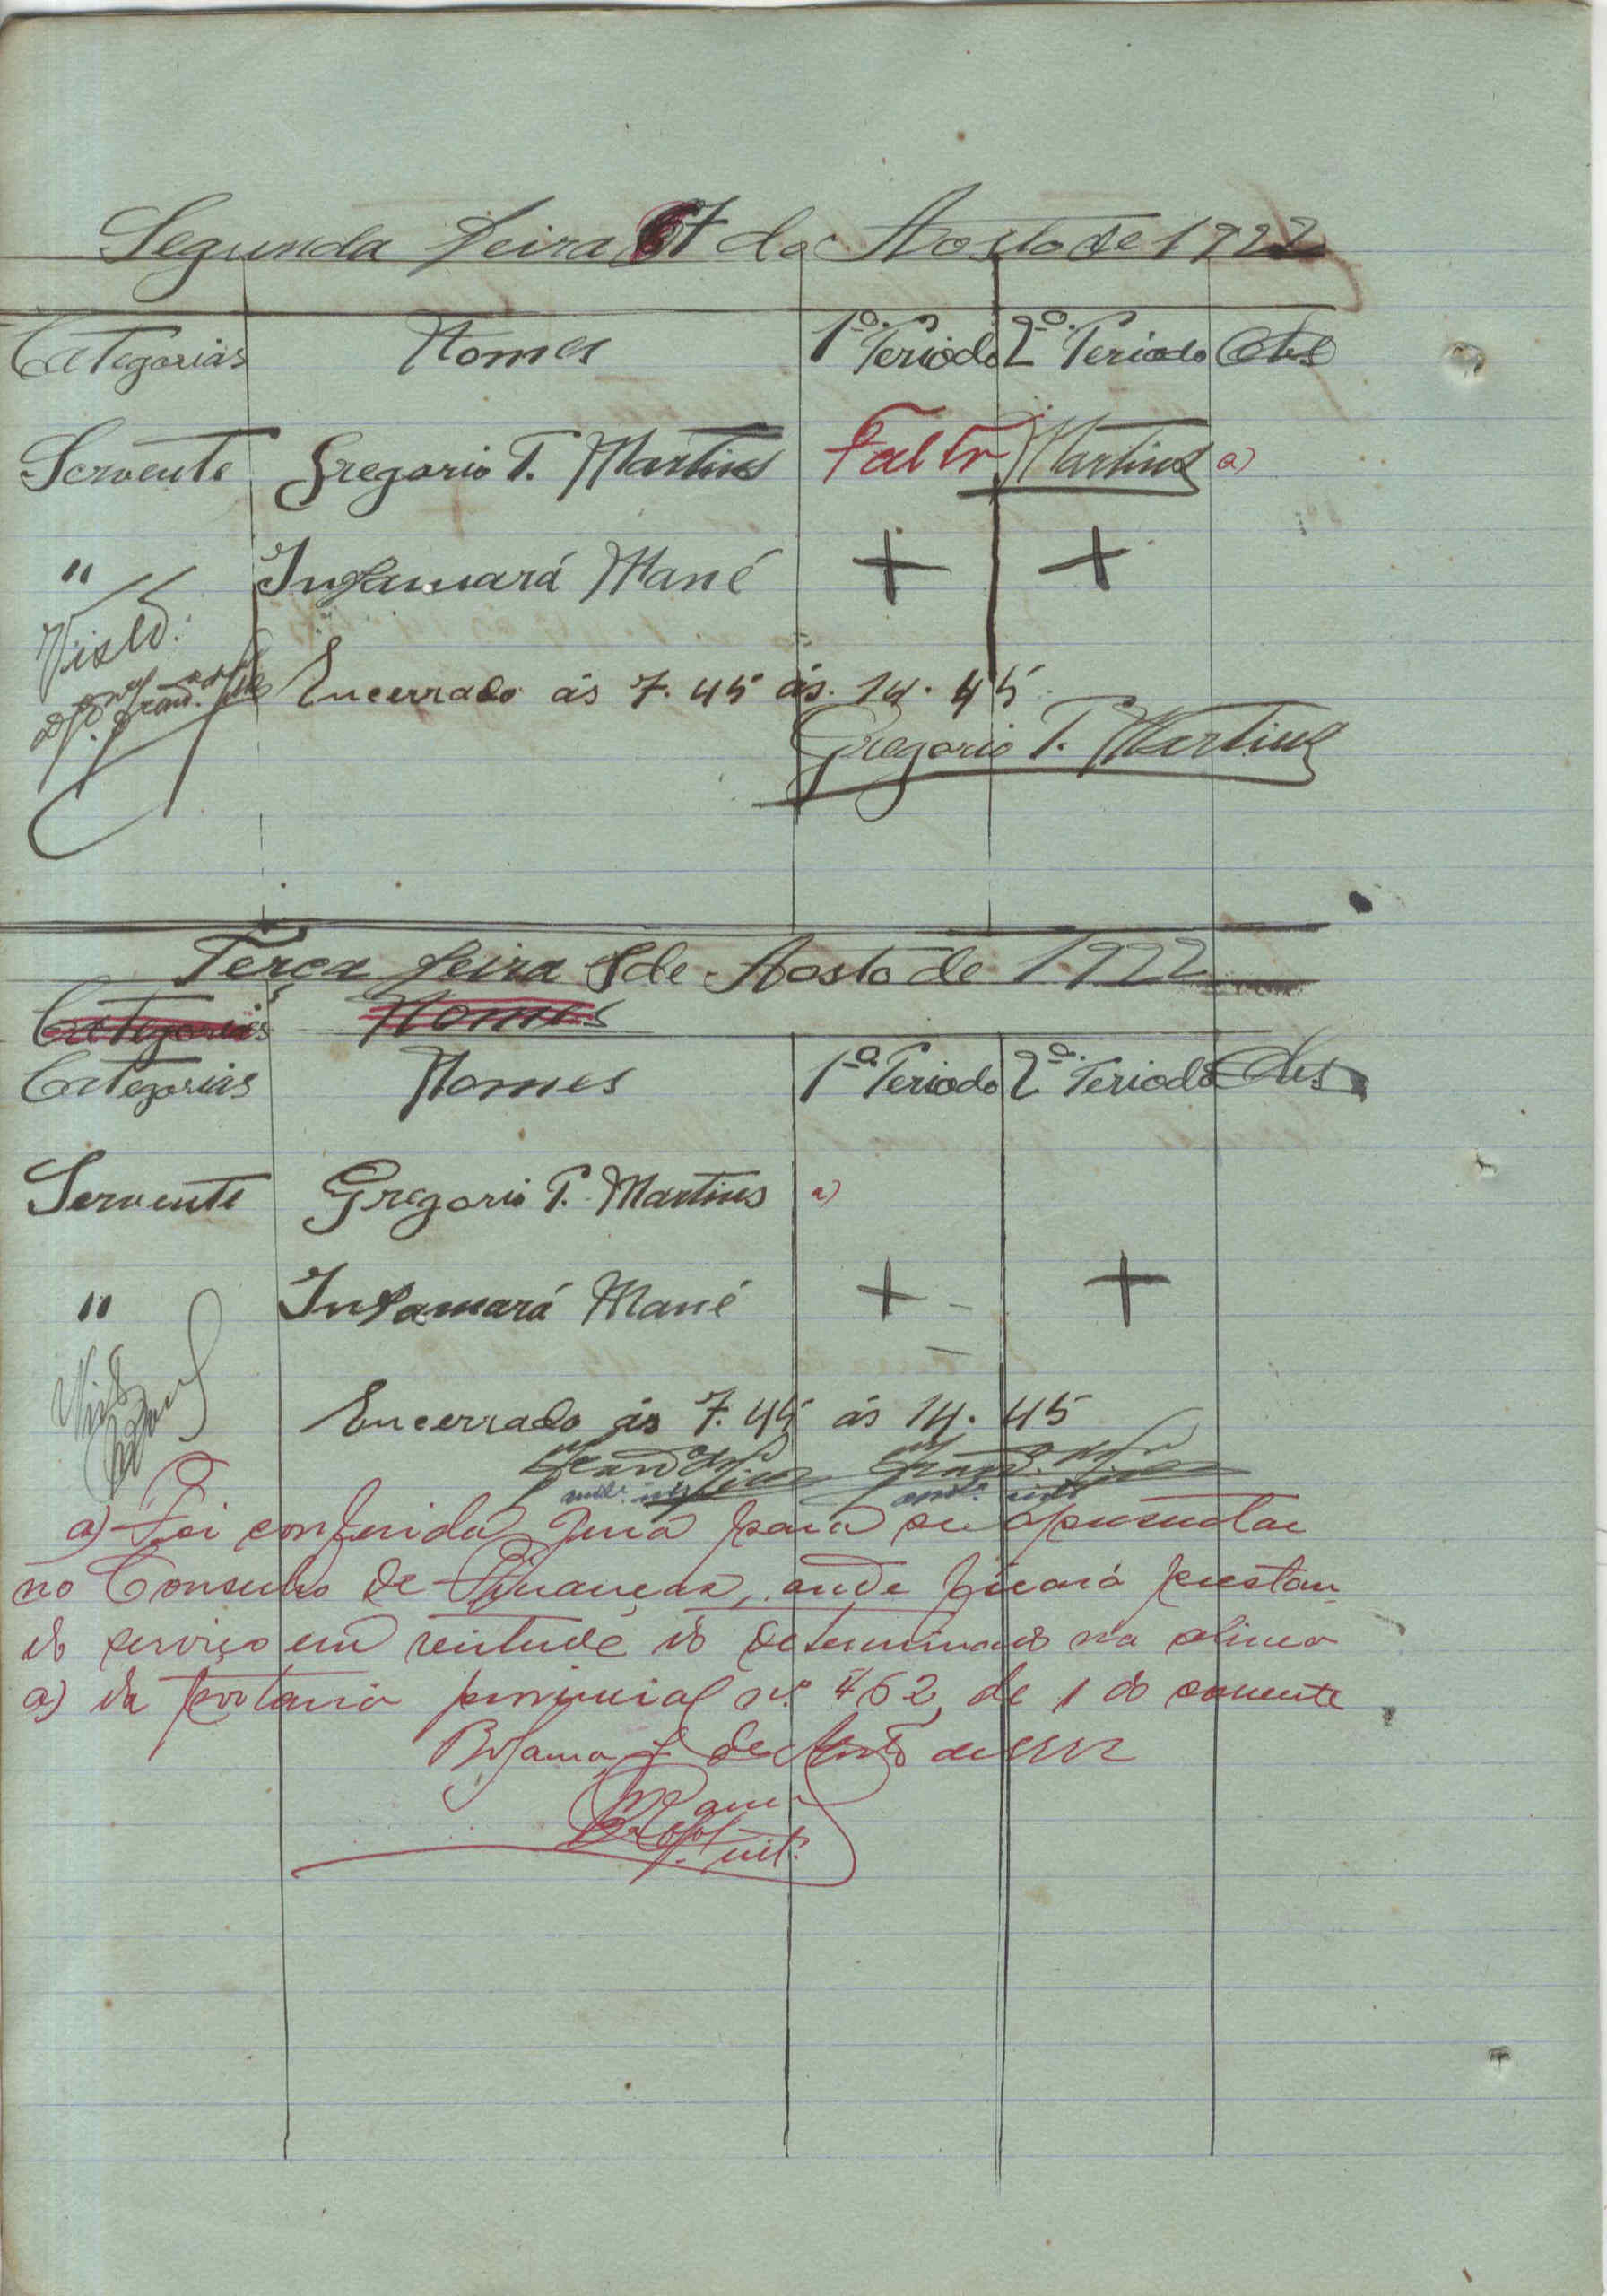 Segunda feira 7 de Aosto de 1922
Categorias Nomes 1º. Periodo 2º. Periodo Obs
Servente Gregorio T. Martins Falta Martins a)
" Insamará Mané + +
Visto.
Encerrado ás 7.45 ás. 14.45
Gregorio T. Martins
Terça feira 8 de Aosto de 1922
Categorias Nomes
Categorias Nomes 1º. Periodo 2º. Periodo Obs
Servente Gregorio T. Martins a)
" Insamará Mané + +
Encerrado ás 7.45 ás 14.45
a) Foi conferida guia para se apresentar
no Conselho de Finanças, onde ficará prestan
do serviço em virtude do determinado na alinea
a) da portaria provincial nº 462, de 1 do corrente
Bolama, de Aosto de 1922